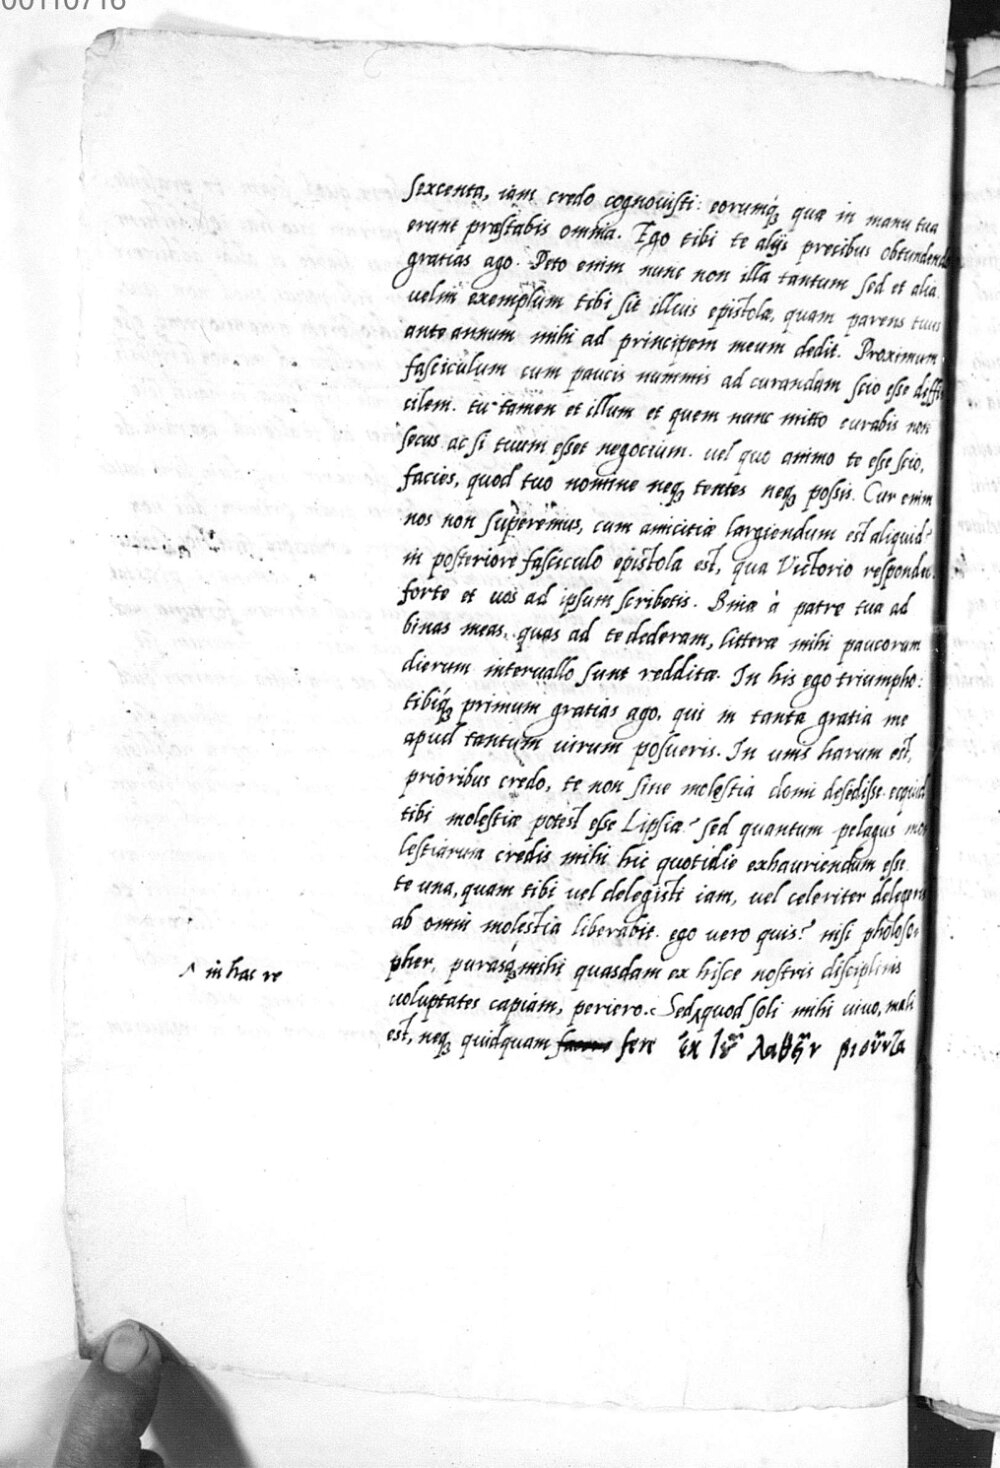 00110716
sexcenta, iam credo cognouisti: eorumq; quæ in manu tua
erunt præstabis omnia. Ego tibi te alijs precibus obtundendi
gratias ago. Peto enim nunc non illa tantum sed et alia.
uelim exemplum tibi sit illius epistolæ, quam parens tuus
ante annum mihi ad principem meum dedit. Proximum
fasciculum cum paucis nummis ad curandam scio esse diffi
cilem. tu tamen et illum et quem nunc mitto curabis non
secus ac si tuum esset negocium. uel quo animo te esse scio,
facies, quod tuo nomine neq; tentes neq; possis. Cur enim
nos non superemus, cum amicitiæ largiendum est aliquid?
in posteriore fasciculo epistola est, qua Victorio respondui.
forte et uos ad ipsum scribetis. Binæ à patre tuo ad
binas meas, quas ad te dederam, litteræ mihi paucorum
dierum interuallo sunt redditæ. In his ego triumpho:
tibiq; primum gratias ago, qui in tanta gratia me
apud tantum uirum posueris. In unis harum est,
prioribus credo, te non sine molestia domi desedisse. ecquid
tibi molestiæ potest esse Lipsiæ? sed quantum pelagus mo
lestiarum credis mihi hic quotidie exhauriendum esse
te una, quam tibi uel delegisti iam, uel celeriter delegeris
ab omni molestia liberabit. ego uero quis? nisi philoso-
pher, purasq; mihi quasdam ex hisce nostris disciplinis
^ in hac re
uoluptates capiam, periero. Sed ^ quod soli mihi uiuo, mali
est, neq; quidquam fere λαθεῖν βιοῦντα